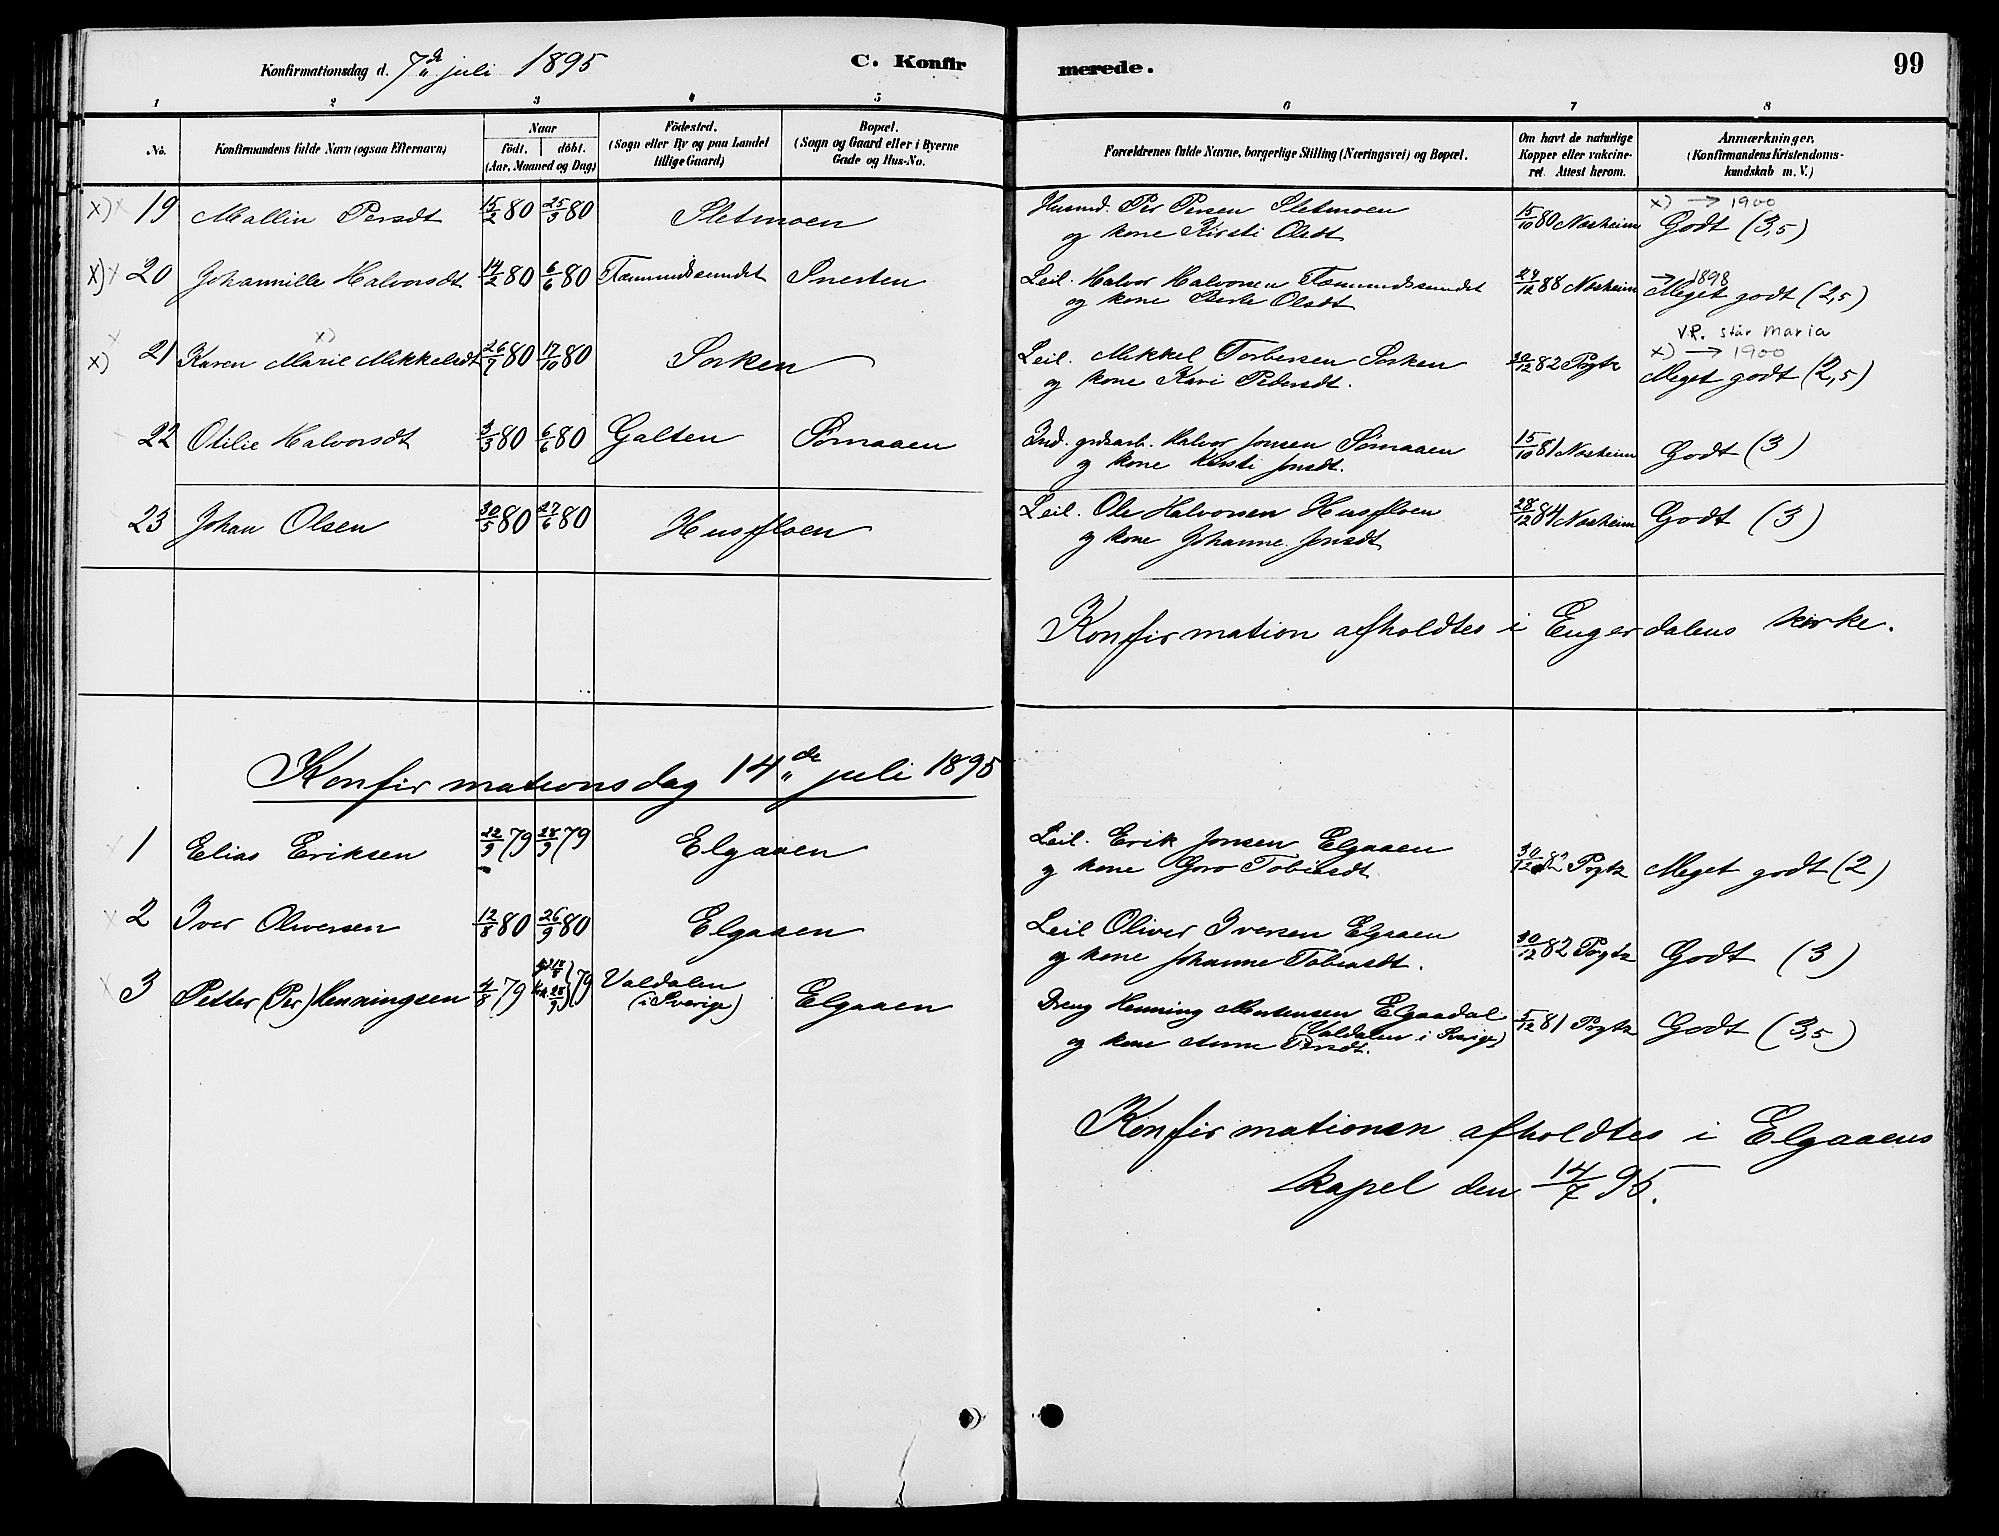 Konfirmationsdag d. 7de juli 1895
C. Konfirmerede.
99
1 2 3 4 5 6 7 8
No.
Konfirmandens fulde Navn (ogsaa Efternavn)
Naar
födt. döbt.
(Aar, Maaned og Dag)
Födested.
(Sogn eller By og paa Landet
tillige Gaard)
Bopæl.
(Sogn og Gaard eller i Byerne
Gade og Hus-No.
Forældrenes fulde Navne, borgerlige Stilling (Næringsvei) og Bopæl.
Om havt de naturlige
Kopper eller vakcine-
ret. Attest herom.
Anmærkninger,
(Konfirmandens Kristendoms-
kundskab m. V.)
x) 19 Mallin Persdt 15/2 80 25/3 80 Sletmoen
Husmd. Per Persen Sletmoen
og kone Kirsti Olsdt
15/10 80 Nosheim
x) → 1900
Godt (3,5)
x) 20 Johannille Halvorsdt 14/2 80 6/6 80 Fæmundssundet Snerten
Leil. Halvor Halvorsen Fæmundssundet
og kone Berte Olsdt
28/12 88 Nosheim
→ 1898
Meget godt (2,5)
x) 21 Karen Marie x) Mikkelsdt 26/7 80 17/10 80 Sorken
Leil. Mikkel Torbersen Sorken
og kone Kari Pedersdt.
30/12 82 Pogtz
V.R. står Maria
x) → 1900
Meget godt (2,5)
22 Otilie Halvorsdt 3/3 80 6/6 80 Galten Sømaaen
Ind. grdsarb. Halvor Jonsen Sømaaen
og kone Kirsti Jonsdt.
15/10 81 Nosheim
Godt (3)
23 Johan Olsen 30/5 80 27/6 80 Husfloen
Leil. Ole Halvorsen Husfloen
og kone Johanne Jonsdt
28/12 84 Nosheim
Godt (3)
Konfirmation afholdtes i Engerdalens kirke.
Konfirmationsdag 14de juli 1895
1 Elias Eriksen 12/9 79 28/9 79 Elgaaen
Leil. Erik Jonsen Elgaaen
og kone Goro Tobiasdt
30/12 82 Pogtz
Meget godt (2)
2 Iver Oliversen 12/8 80 26/9 80 Elgaaen
Leil Oliver Iversen Elgaaen
og kone Johanne Tobiasdt.
30/12 82 Pogtz
Godt (3)
3 Petter (Per) Henningsen 4/8 79 28/9 79 Valdalen
(i Sverige)
Elgaaen
Dreng Henning Mortensen Elgaadal
(Valdalen i Sverige)
og kone Anne Persdt.
5/12 81 Pogtz
Godt (3,5)
Konfirmationen afholdtes i Elgaaens
kapel den 14/7 95.